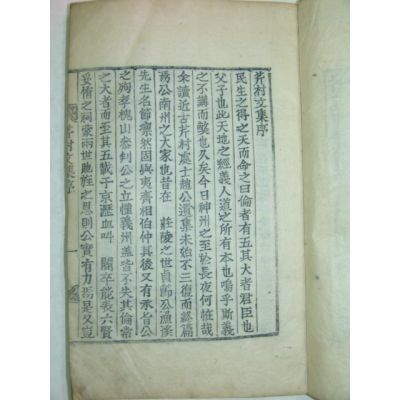 芹村文集序
民生之得之天而命之曰倫者有五其大者君臣也
父子也此天地之經義人道之所有本也嗚乎斯義
之不講而斁也久矣今日神州之至於長夜何怪哉
余讀近古芹村處士趙公遺集未始不三復而終篇
焉公南州之大家也昔在　莊陵之世貞節公漁溪
先生名節凜然固與夷齊相伯仲其後又有承旨公
之殉孝槐山
公之立殣義州蓋皆不失其倫常
之大者而至其五
子京瀝血叫　閽卒能表六賢
妥侑之祠蒙兩世
之恩則公實有力焉是又豈
芹村文集序
一